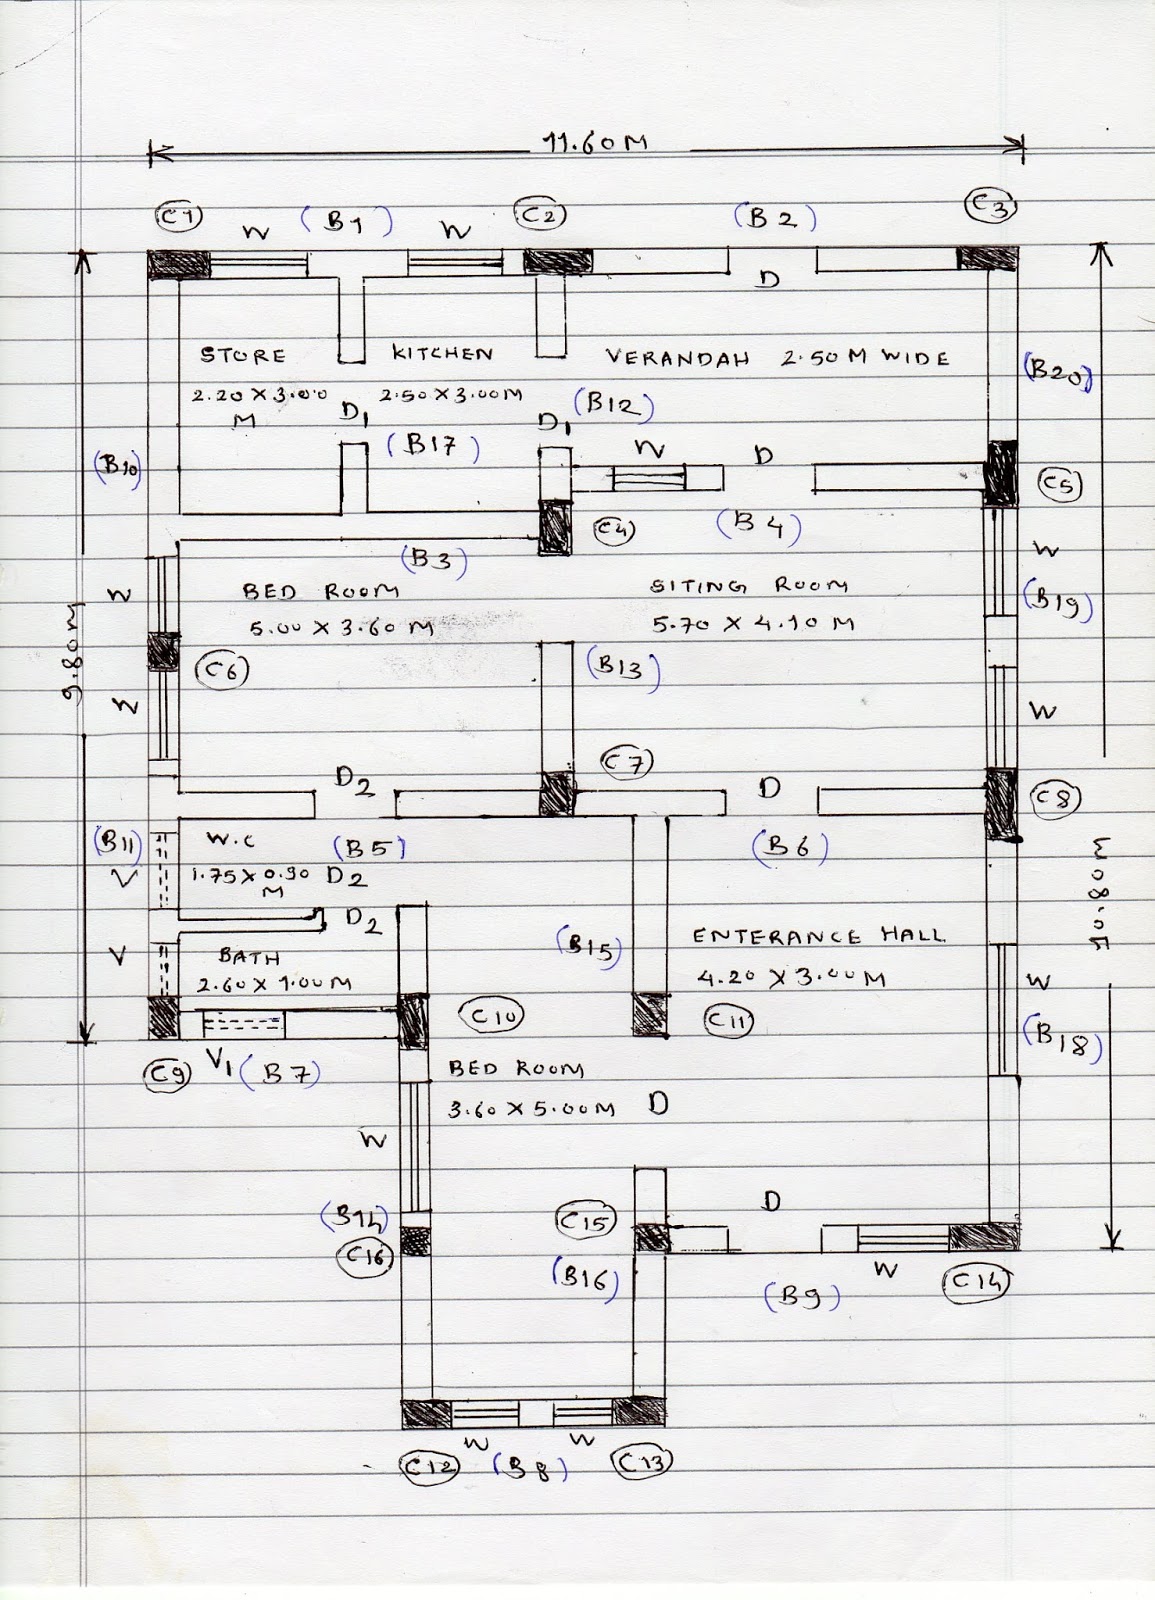 11.60M
C1 W (B1) W C2 (B2) C3
D
STORE KITCHEN VERANDAH 2.50 M WIDE
(B20)
2.20 X 3.00 M
2.50 X 3.00M
D1 D1 (B12)
(B17) W D
(B10) C5
C4 (B4)
(B3) W
BED ROOM SITING ROOM
W (B19)
5.00 X 3.60 M 5.70 X 4.10 M
9.80M
C6 (B13)
W W
C7
D2 D C8
(B11) W.C (B5) (B6)
V 1.75 X 0.90 M D2
D2
(B15) ENTERANCE HALL
V BATH
2.60 X 1.00M 4.20 X 3.00M W
C10 C11
(B18)
C9 V1 (B7) BED ROOM
3.60 X 5.00M D
W
D
(B14) C15
C16
(B16) W C14
(B9)
W W
C12 (B8) C13